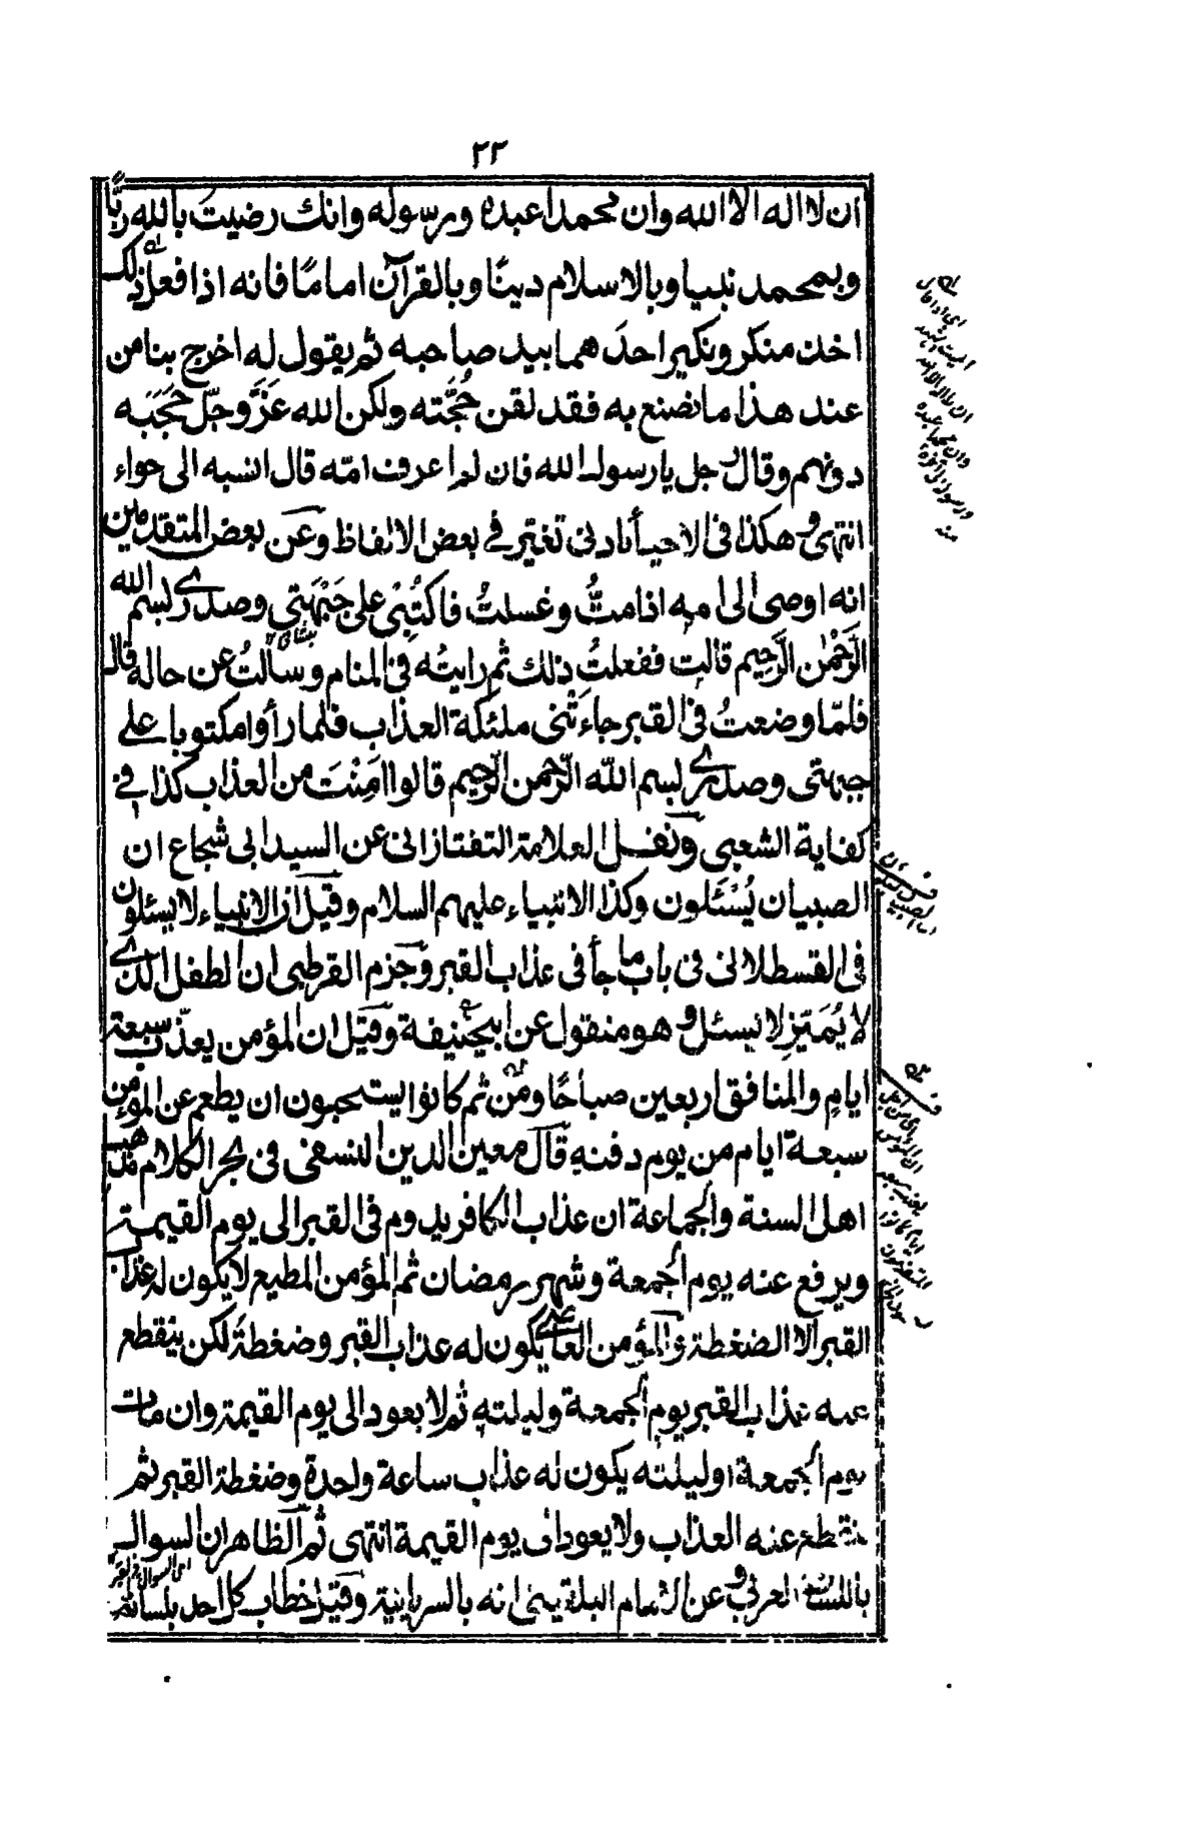 ٢٣
ان لا اله الا الله وان محمدا عبده ورسوله وانك رضيت بالله ربًّا
وبمحمد نبيا وبالاسلام دينًا وبالقرآن امامًا فانه اذا فعل ذلك
اخذ منكر ونكير احدَهما بيد صاحبه ثم يقول له اخرج بنا من
عند هذا ما نصنع به فقد لقن حُجَّته ولكن الله عَزَّ وجلّ حَجَبَه
دونهم وقال رجل يا رسول الله فان لم اعرف امّه قال انسبه الى حواء
انتهى وهكذا فى الاحياء بادنى تغير في بعض الالفاظ وعن بعض المتقدمين
انه اوصى الى امه اذا متُّ وغسلتُ فاكتُبْى على جَبْهَتى وصدرى بسم الله
الرَّحْمٰن الرَّحِيم قالت ففعلتُ ذلك ثم رايتُه فى المنام وسألتُ عن حاله قال
فلمّا وضعتُ فى القبر جاءَتْنى ملئكة العذاب فلما رأوا مكتوبا على
جبهتى وصدرى بسم الله الرّحمن الرّحيم قالوا امِنْتَ من العذاب كذا في
كفاية الشعبى ونقل العلامة التفتازانى عن السيد ابى شجاع ان
الصبيان يُسْئَلون وكذا الانبياء عليهم السلام وقيل ان الانبياء لا يسئلون
فى القسطلانى فى باب ما جاء فى عذاب القبر وجزم القرطبى ان الطفل الذى
لا يُمَيّزِ لا يسئل وهو منقول عن ابيحنيفة وقيل ان المؤمن يعذّب سبعة
ايام والمنافق اربعين صباحًا ومن ثم كانوا يستحبون ان يطعم عن المؤمن
سبعة ايام من يوم دفنه قال معين الدين النسفى فى بحر الكلام مذهب
اهل السنة والجماعة ان عذاب الكافر يدوم فى القبر الى يوم القيمة
ويرفع عنه يوم الجمعة وشهر رمضان ثم المؤمن المطيع لا يكون له عذاب
القبر الا الضغطة والمؤمن العاصى يكون له عذاب القبر وضغطة لكن ينقطع
عنه عذاب القبر يوم الجمعة وليلته ثم لا يعود الى يوم القيمة وان مات
يوم الجمعة او ليلته يكون له عذاب ساعة واحدة وضغطة القبر ثم
ينقطع عنه العذاب ولا يعود الى يوم القيمة انتهى ثم الظاهر ان السوال
باللسان العربى وعن الامام البلقينى انه بالسريانية وقيل خطاب كل احد بلسانه